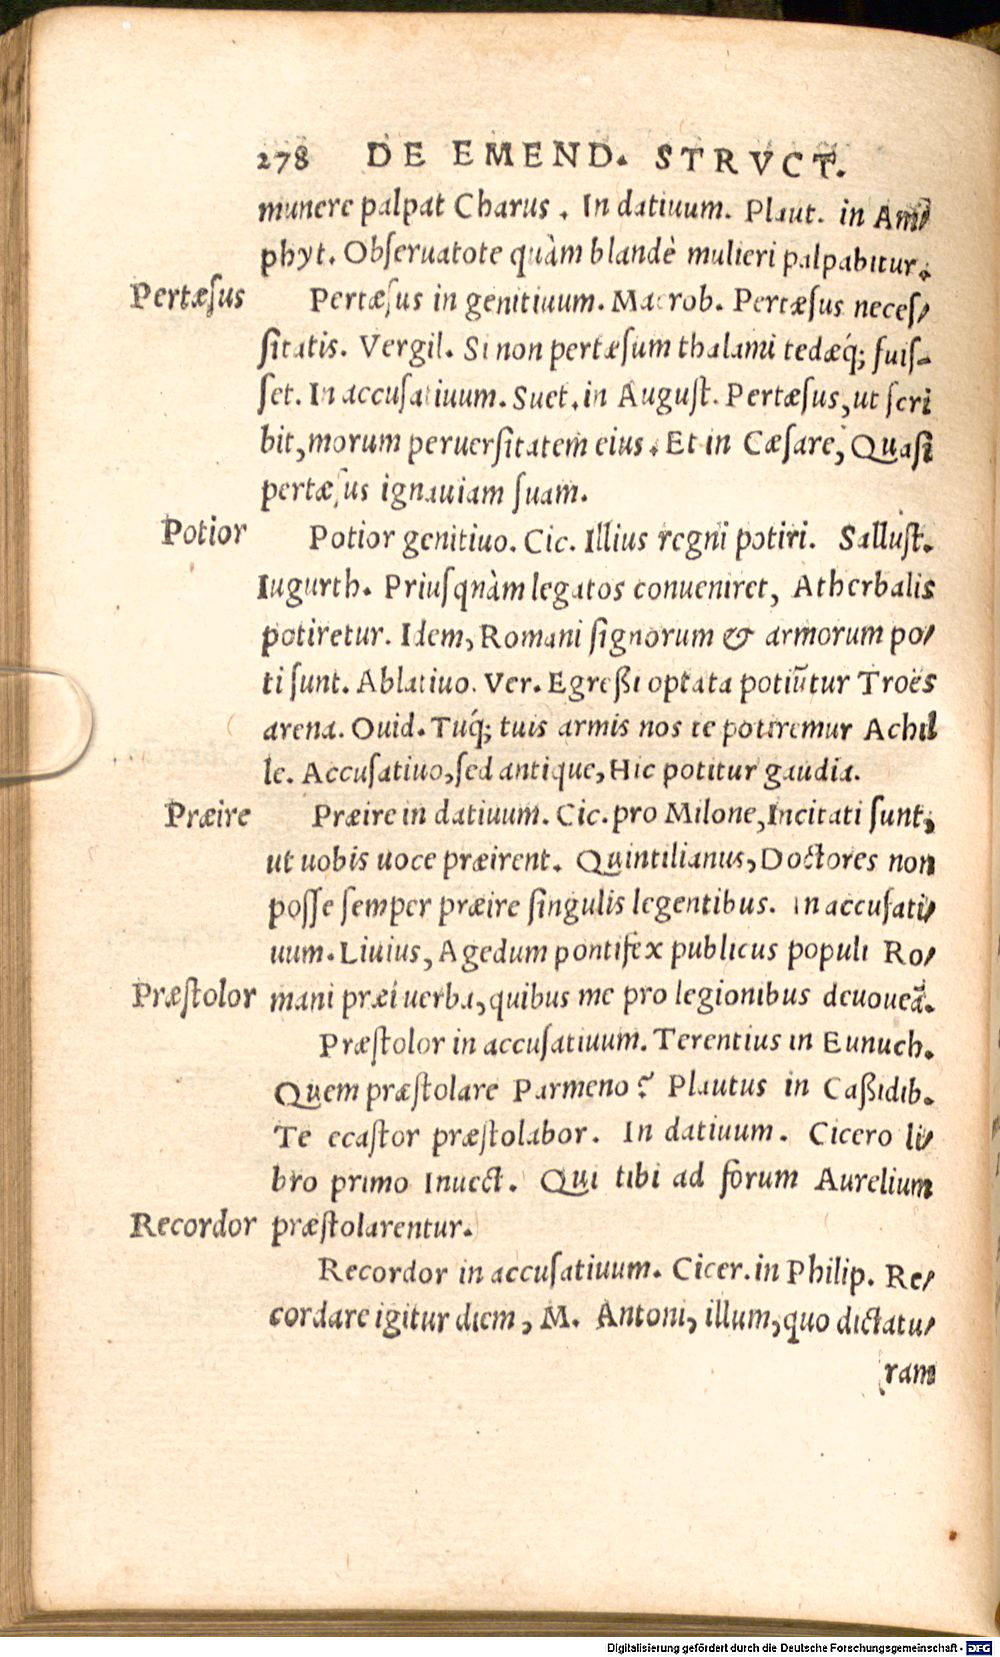 278 DE EMEND. STRVCT.
munere palpat Charus. In datiuum. Plaut. in Am⸗
phyt. Obſeruatote quàm blandè mulieri palpabitur.
Pertæſus
Pertæſus in genitiuum. Macrob. Pertæſus neceſ⸗
ſitatis. Vergil. Si non pertæſum thalami tedæq́; fuiſ-
ſet. In accuſatiuum. Suet. in Auguſt. Pertæſus, ut ſcri
bit, morum peruerſitatem eius. Et in Cæſare, Quaſi
pertæſus ignauiam ſuam.
Potior
Potior genitiuo. Cic. Illius regni potiri. Salluſt.
Iugurth. Priuſqnàm legatos conueniret, Atherbalis
potiretur. Idem, Romani ſignorum & armorum po⸗
ti ſunt. Ablatiuo. Ver. Egreßi optata potiũtur Troës
arena. Ouid. Tuq́; tuis armis nos te potiremur Achil
le. Accuſatiuo, ſed antique, Hic potitur gaudia.
Præire
Præire in datiuum. Cic. pro Milone, Incitati ſunt,
ut uobis uoce præirent. Quintilianus, Doctores non
poſſe ſemper præire ſingulis legentibus. In accuſati⸗
uum. Liuius, Agedum pontifex publicus populi Ro⸗
mani præi uerba, quibus me pro legionibus deuoueã.
Præſtolor
Præſtolor in accuſatiuum. Terentius in Eunuch.
Quem præſtolare Parmeno? Plautus in Caßidib.
Te ecaſtor præſtolabor. In datiuum. Cicero li⸗
bro primo Inuect. Qui tibi ad forum Aurelium
præſtolarentur.
Recordor
Recordor in accuſatiuum. Cicer. in Philip. Re⸗
cordare igitur diem, M. Antoni, illum, quo dictatu⸗
ram
Digitalisierung gefördert durch die Deutsche Forschungsgemeinschaft - DFG